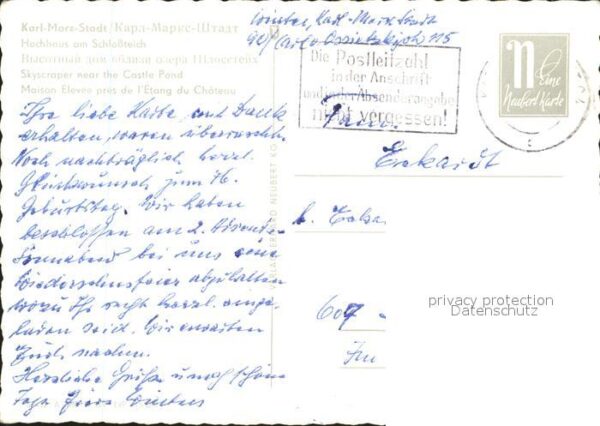 Karl-Marx-Stadt/Карл-Маркс-Штадт
Hochhaus am Schloßteich
Высотный дом вблизи озера Шлосстейх
Skyscraper near the Castle Pond
Maison Elevée près de l'Etang du Château
Ihre liebe Karte mit Dank
erhalten, waren überrascht.
Noch nachträglich herzl.
Glückwunsch zum 76.
Geburtstag. Wir haben
beschlossen am 2. Advents-
Sonnabend bei uns eine
Wiedersehensfeier abzuhalten
wozu Ihr recht herzl. einge-
laden seid. Wir erwarten
Euch
Herzliche Grüße u. noch schöne
Tage Eure Winters
Winter, Karl-Marx-Stadt
90, Carl v. Ossietzkystr 115
Die Postleitzahl
in der Anschrift
und in der Absenderangabe
nicht vergessen!
Eine
Neubert Karte
Fam.
Eckardt
VERLAG ERHARD NEUBERT KG
607
privacy protection
Datenschutz